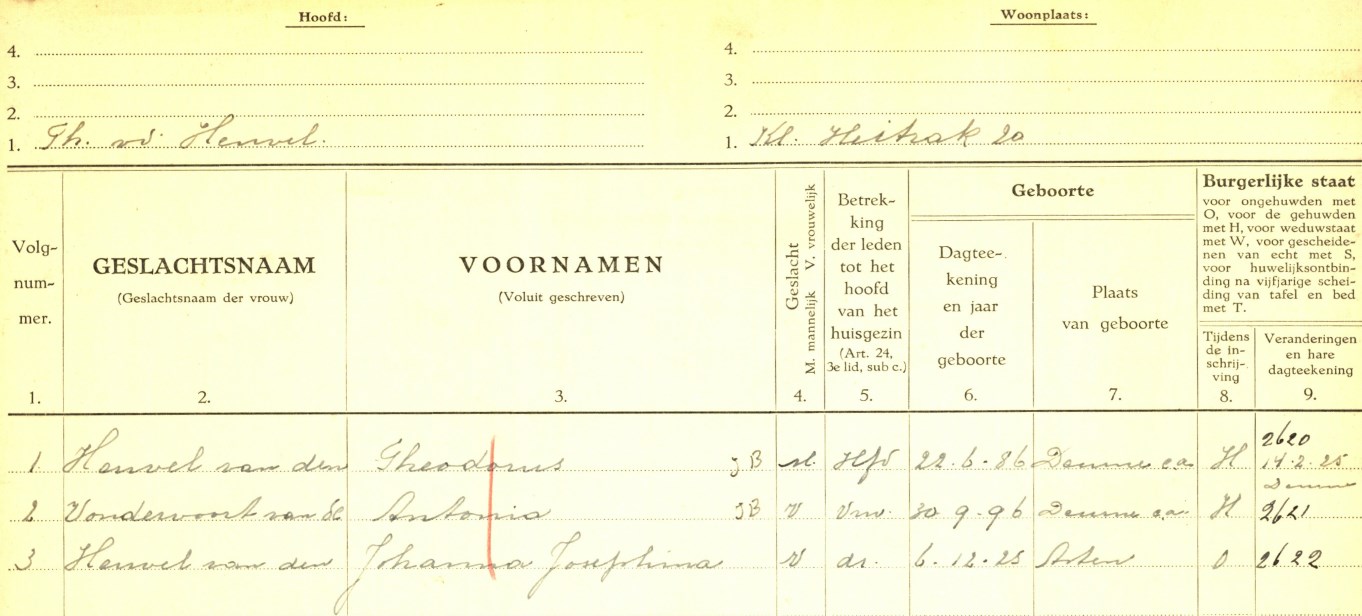 Hoofd:
Woonplaats:
4.
4.
3.
3.
2.
2.
1. Th. vd Heuvel.
1. Kl. Heitrak 20
Volg-
num-
mer.
1.
GESLACHTSNAAM
(Geslachtsnaam der vrouw)
2.
VOORNAMEN
(Voluit geschreven)
3.
Geslacht
M. mannelijk V. vrouwelijk
4.
Betrek-
king
der leden
tot het
hoofd
van het
huisgezin
(Art. 24,
3e lid, sub c.)
5.
Geboorte
Dagtee-
kening
en jaar
der
geboorte
6.
Plaats
van geboorte
7.
Burgerlijke staat
voor ongehuwden met
O, voor de gehuwden
met H, voor weduwstaat
met W, voor gescheide-
nen van echt met S,
voor huwelijksontbin-
ding na vijfjarige schei-
ding van tafel en bed
met T.
Tijdens
de in-
schrij-
ving
8.
Veranderingen
en hare
dagteekening
9.
1 Heuvel van den Theodorus JB M. Hfd 22.6.86 Deurne ca H 2620
14.2.25
Deurne
2 Vondervoort van de Antonia JB V Vrw. 30 9.96 Deurne ca H 2621
3 Heuvel van den Johanna Josephina V dr. 6.12.25 Asten O 2622